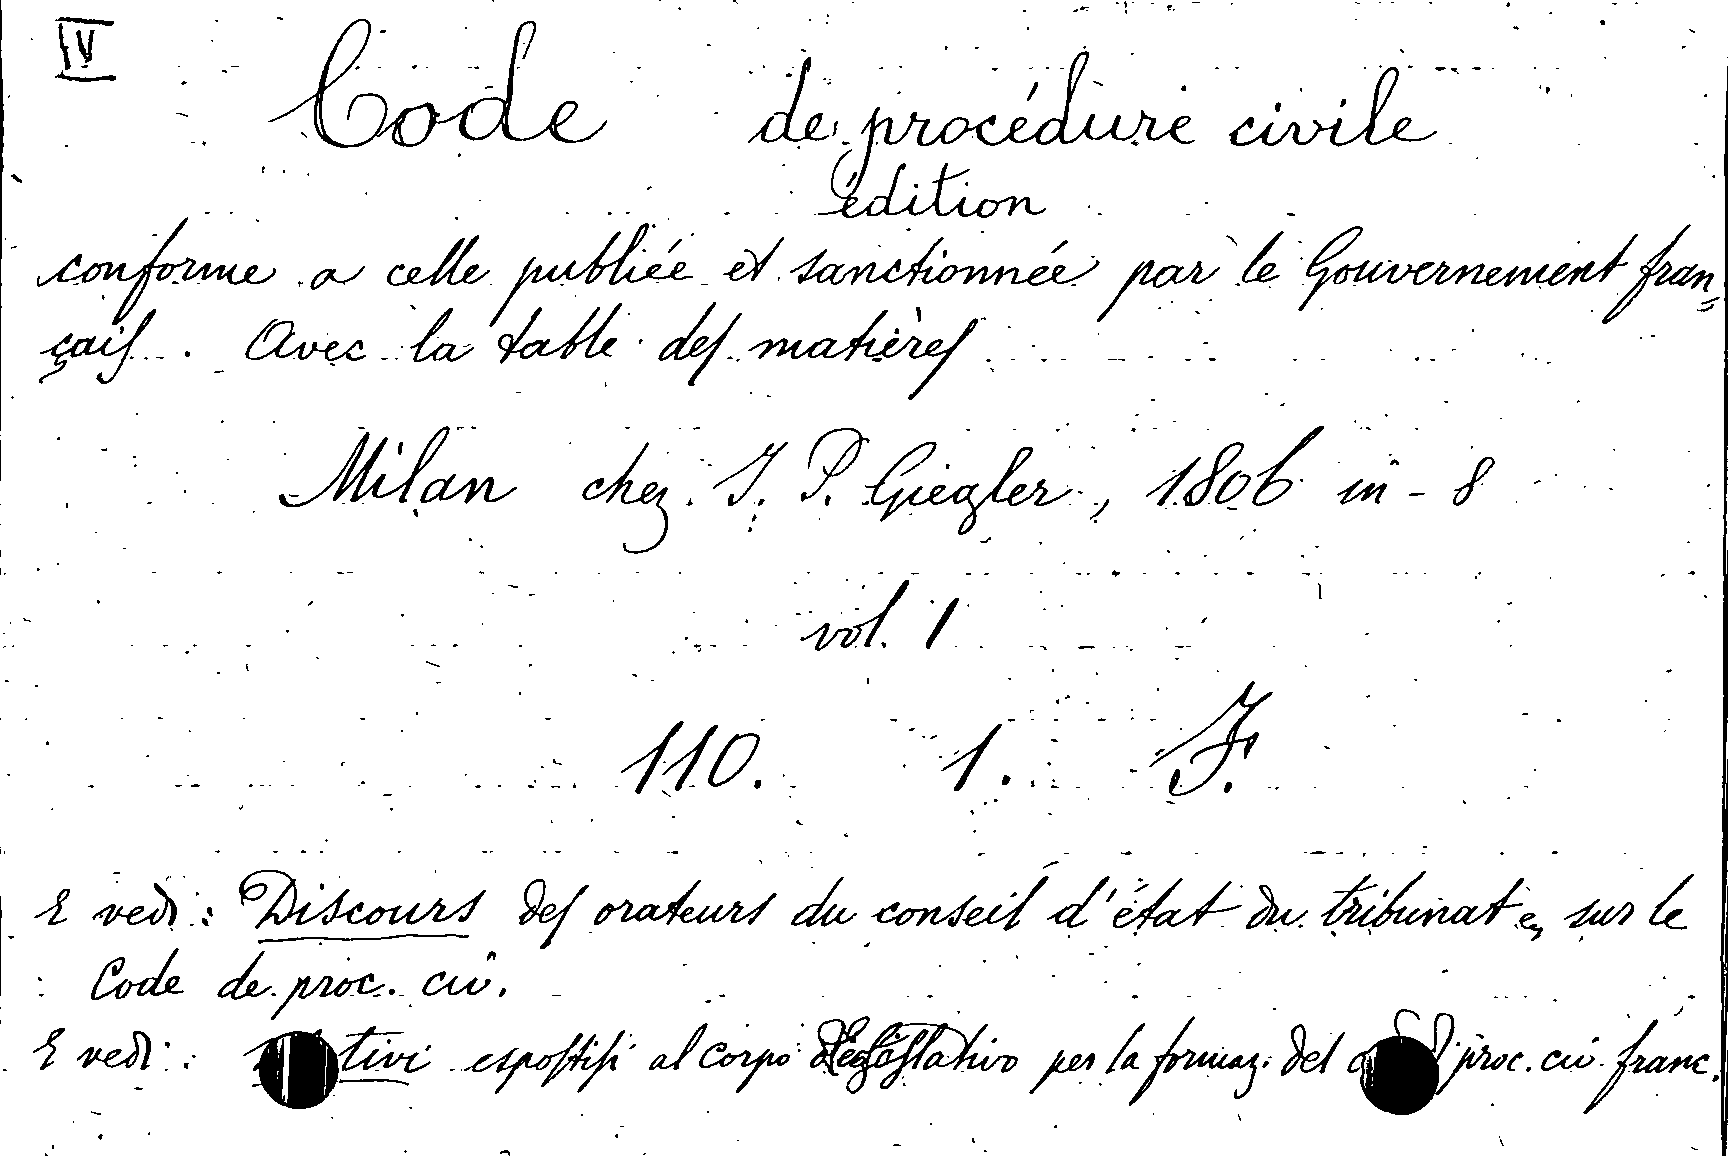 IV
Code de procédure civile
édition
conforme a celle publiée et sanctionnée par le Gouvernement fran=
çais. Avec la table des matières
Milan chez J. P. Giegler, 1806 in-8
vol. 1
110. 1. F.
E vedi: Discours des orateurs du conseil d'état du tribunat e, sur le
Code de proc. civ.
E vedi: tivi espostisi al corpo legislativo per la formaz. del proc. civ. franc.